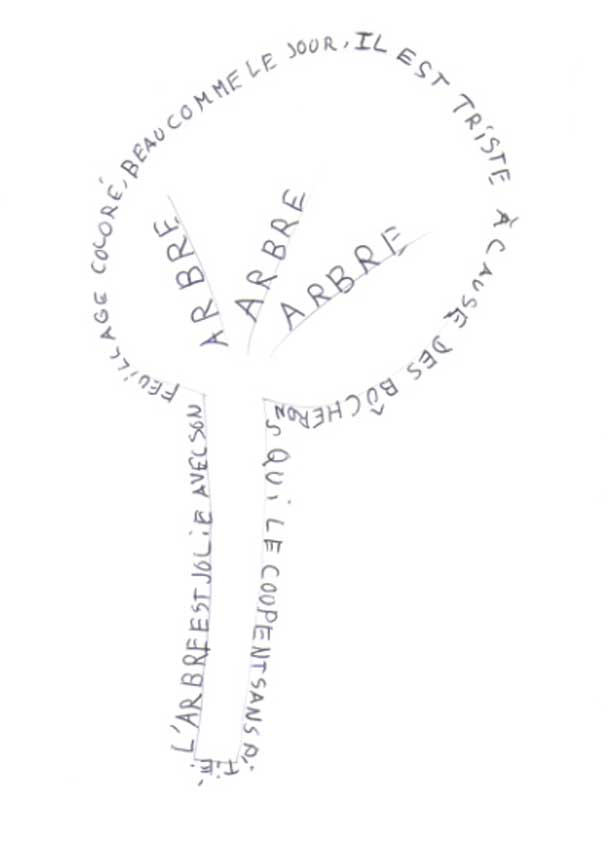 L'ARBRE EST JOLIE AVEC SON FEUILLAGE COLORÉ, BEAU COMME LE JOUR, IL EST TRISTE À CAUSE DES BÛCHERONS QUI LE COUPENT SANS PITIÉ
ARBRE
ARBRE
ARBRE